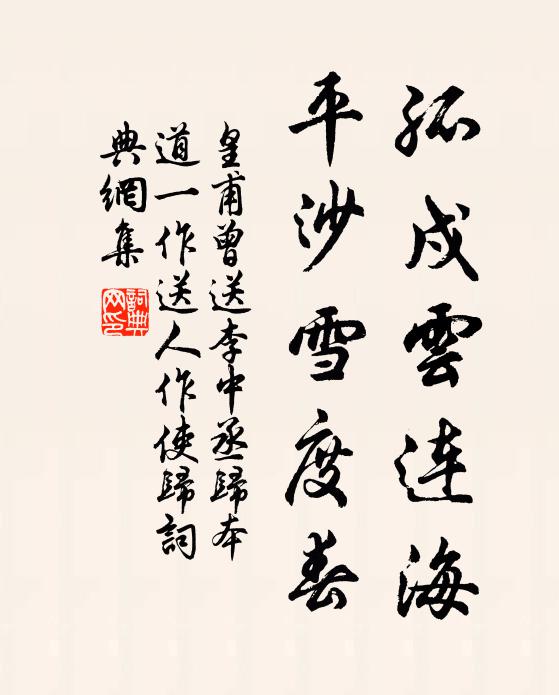 孤戍雲連海
平沙雪度春
皇甫曾送李中丞歸本
道一作送人作使歸詞
典網集
詞典
网印